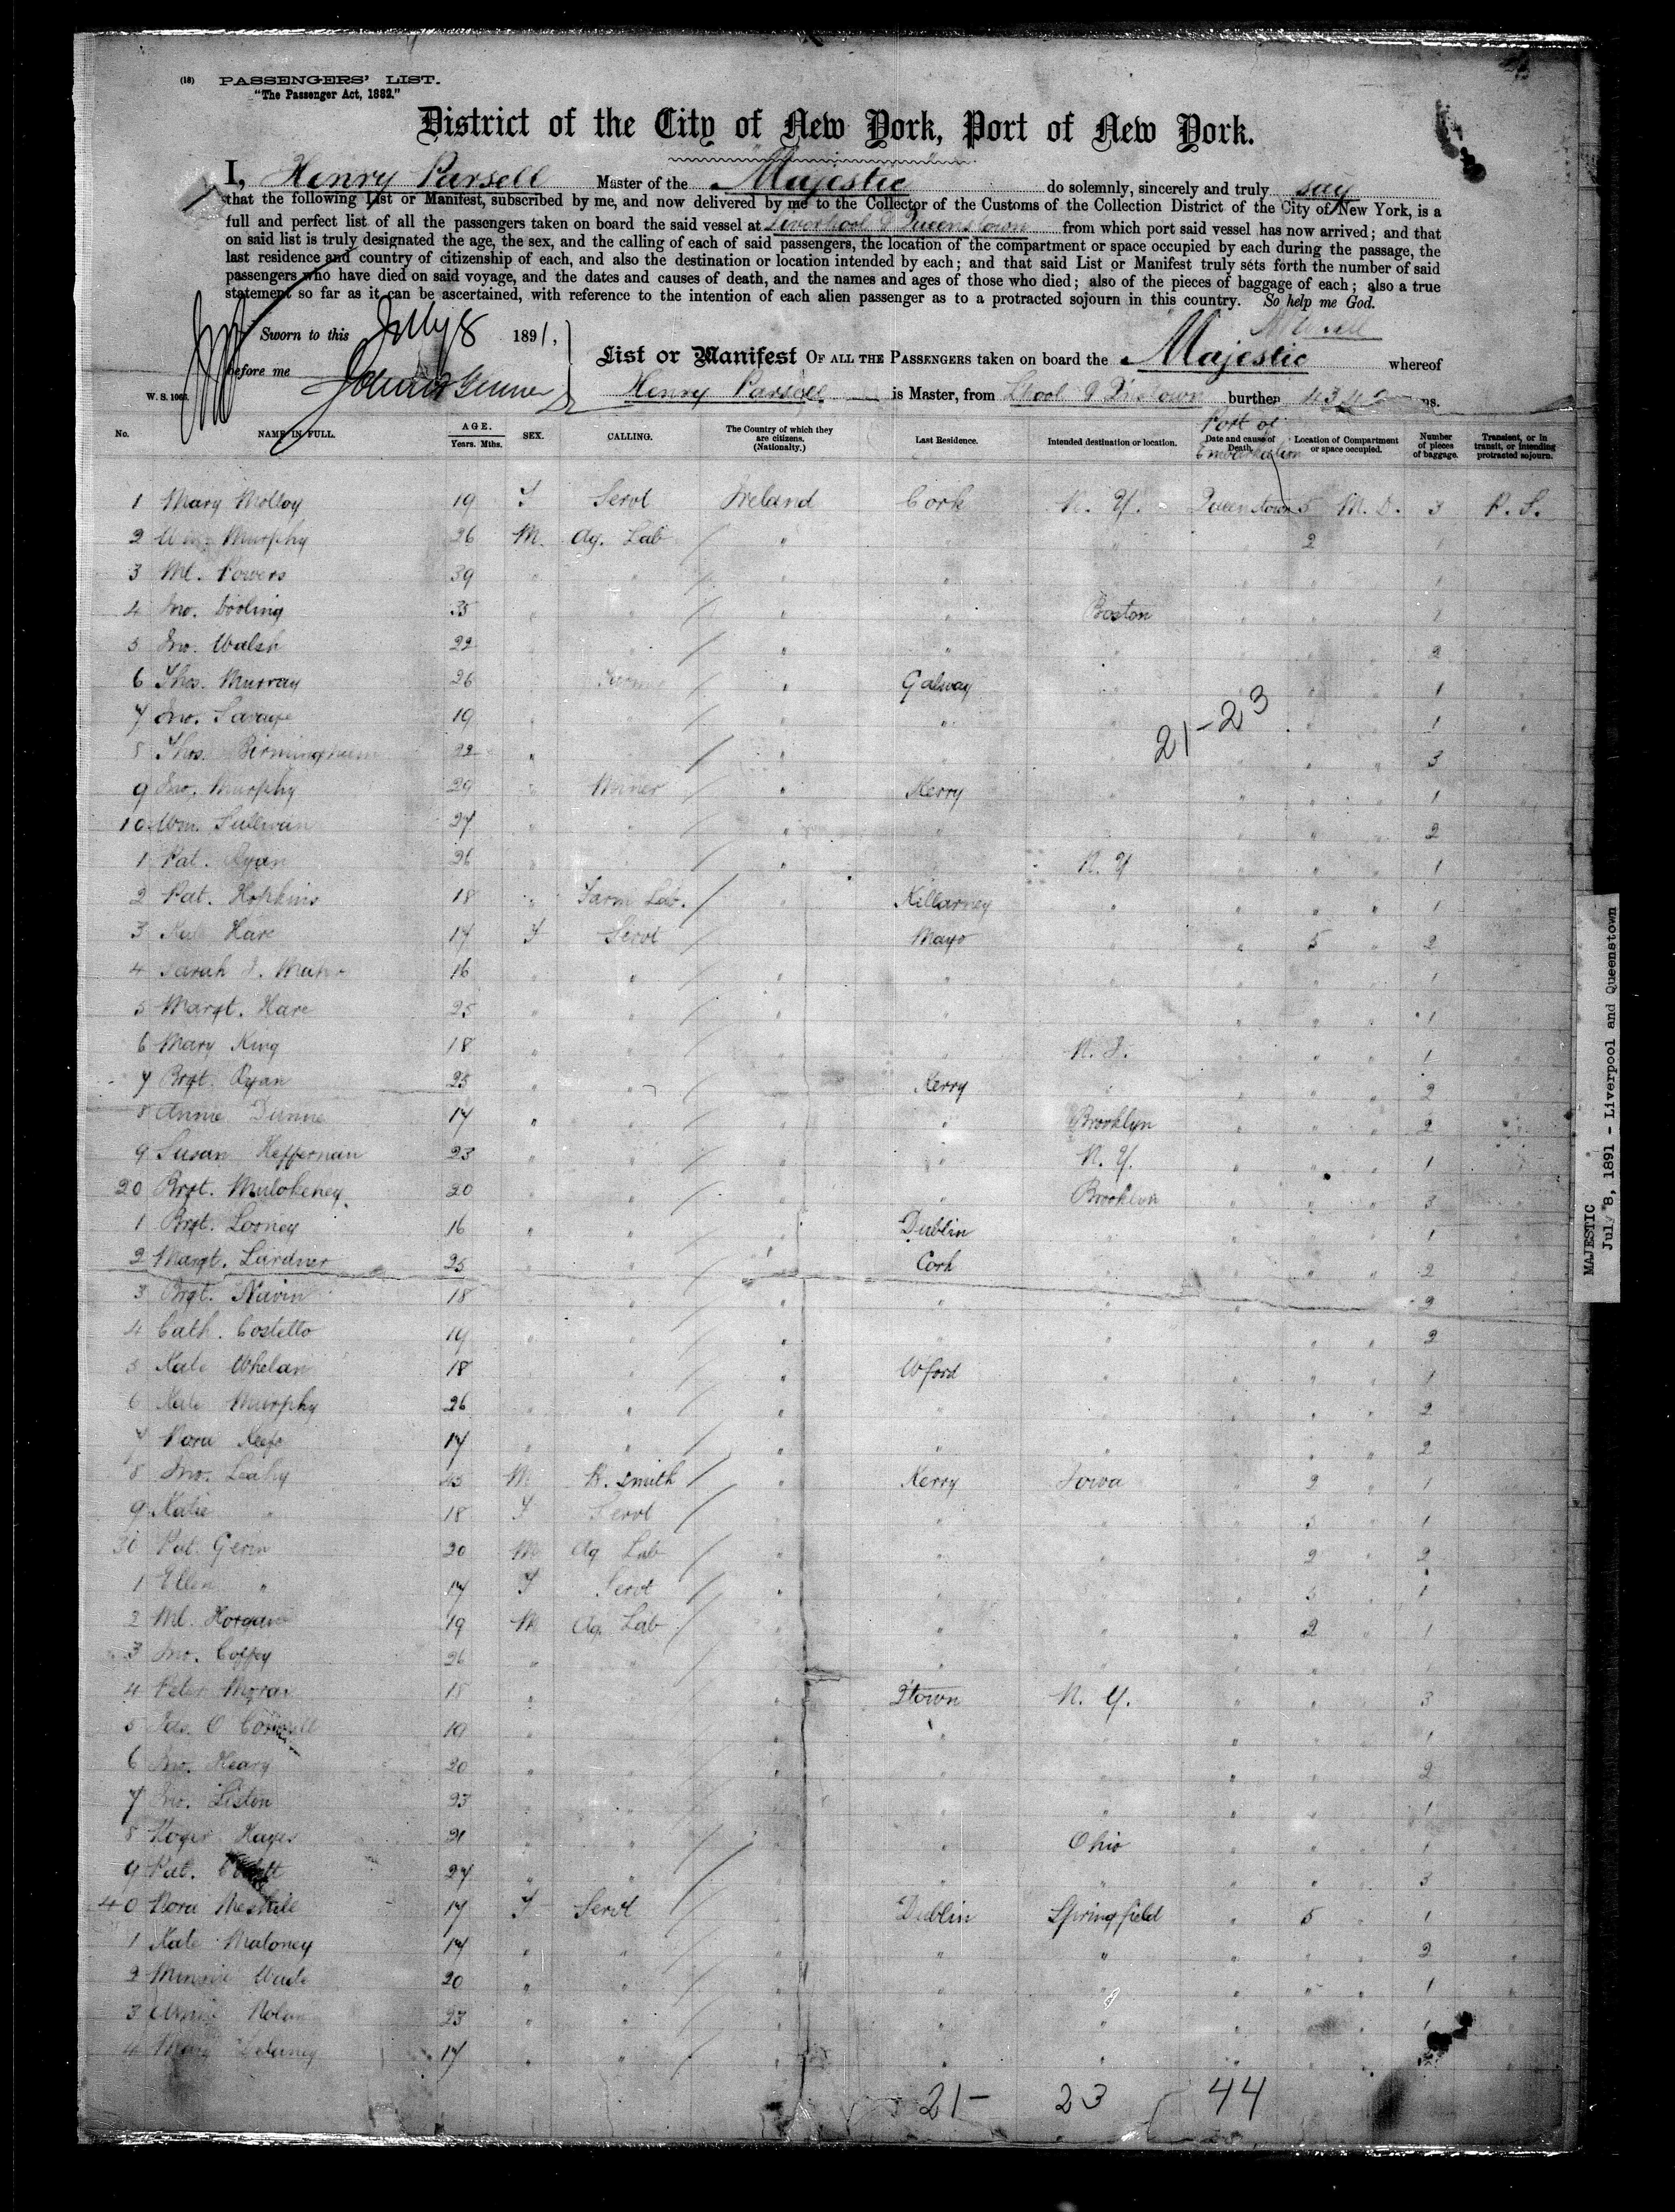 (18) PASSENGERS' LIST.
"The Passenger Act, 1882."
District of the City of New York, Port of New York.
I, Henry Parsell Master of the Majestic do solemnly, sincerely and truly say
that the following List or Manifest, subscribed by me, and now delivered by me to the Collector of the Customs of the Collection District of the City of New York, is a
full and perfect list of all the passengers taken on board the said vessel at Liverpool & Queenstown from which port said vessel has now arrived; and that
on said list is truly designated the age, the sex, and the calling of each of said passengers, the location of the compartment or space occupied by each during the passage, the
last residence and country of citizenship of each, and also the destination or location intended by each; and that said List or Manifest truly sets forth the number of said
passengers who have died on said voyage, and the dates and causes of death, and the names and ages of those who died; also of the pieces of baggage of each; also a true
statement so far as it can be ascertained, with reference to the intention of each alien passenger as to a protracted sojourn in this country. So help me God.
Sworn to this July 8 1891,
before me
W. S. 1066.
List or Manifest OF ALL THE PASSENGERS taken on board the Majestic whereof
Henry Parsell is Master, from L'pool & Q'nstown burthen tns.
No. NAME IN FULL. AGE. Years. Mths. SEX. CALLING. The Country of which they are citizens. (Nationalty.) Last Residence. Intended destination or location. Date and cause of Death. Port of Embarkation Location of Compartment or space occupied. Number of pieces of baggage. Transient, or in transit, or intending protracted sojourn.
1 Mary Molloy 19 F Servt Ireland Cork N. Y. Queenstown 5 M. D. 3 P. S.
2 Wm. Murphy 26 M. Ag. Lab " " " " 2 " 1 "
3 Ml. Powers 39 " " " " " " " " 1 "
4 Jno. Dooling 35 " " " " Boston " " " 1 "
5 Jno. Walsh 22 " " " " " " " " 2 "
6 Thos. Murray 26 " " Galway " " " " 1 "
7 Jno. Savage 19 " " " " " " " " 1 "
8 Thos. Birmingham 22 " " " " " " " " 3 "
21-23
9 Jno. Murphy 29 " Miner " Kerry " " " " 1 "
10 Wm. Sullivan 27 " " " " " " " " 2 "
1 Pat. Ryan 26 " " " " N. Y " " " 1 "
2 Pat. Hopkins 18 " Farm Lab. " Killarney " " " " 1 "
3 Kate Hare 17 F Servt " Mayo " " 5 " 2 "
4 Sarah J. 16 " " " " " " " " 1 "
5 Margt. Hare 25 " " " " " " " " 1 "
6 Mary King 18 " " " " N. J. " " " 1 "
7 Brgt. Ryan 25 " " " Kerry " " " " 2 "
8 Annie Dunne 17 " " " " Brooklyn " " " 2 "
9 Susan Heffernan 23 " " " " N. Y. " " " 1 "
20 Brgt. 20 " " " " Brooklyn " " " 3 "
1 Brgt. Looney 16 " " " Dublin " " " " 1 "
2 Margt. Lardner 25 " " " Cork " " " " 2 "
3 Brgt. Navin 18 " " " " " " " " 2 "
4 Cath. Costello 19 " " " " " " " " 2 "
5 Kate Whelan 18 " " " Wford " " " " 1 "
6 Kate Murphy 26 " " " " " " " " 2 "
7 Nora Keefe 17 " " " " " " " " 2 "
8 Jno. Leahy 45 M B. Smith " Kerry Iowa " 2 " 1 "
9 Katie " 18 F Servt " " " " 5 " 1 "
30 Pat. Gerin 20 M Ag Lab " " " " 2 " 2 "
1 Ellen " 17 F Servt " " " " 5 " 1 "
2 Ml. Horgan 19 M Ag. Lab " " " " 2 " 1 "
3 Jno. Coffey 26 " " " " " " " " 1 "
4 Peter Moran 18 " " " Qtown N. Y. " " " 3 "
5 Jas. O Connell 19 " " " " " " " " 1 "
6 Jno. Heary 20 " " " " " " " " 2 "
7 Jno. Liston 23 " " " " " " " " 1 "
8 Roger Hayes 21 " " " " Ohio " " " 1 "
9 Pat. 27 " " " " " " " " 3 "
40 Nora Meskill 17 F Servt " Dublin Springfield " 5 " 1 "
1 Kate Maloney 17 " " " " " " " " 2 "
2 Minnie Wade 20 " " " " " " " " 1 "
3 Annie Nolan 23 " " " " " " " " 1 "
4 Mary Delaney 17 " " " " " " " "
21- 23 44
MAJESTIC
July 8, 1891 - Liverpool and Queenstown